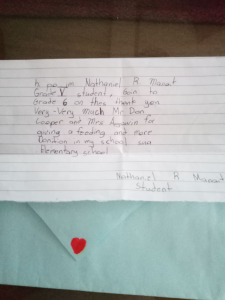 Nathaniel R
Grade V student,
Grade 6 on this thank you
Very-Very Much Mr. Don
Cooper and Mrs. for
giving a feeding and more
Donition in my school
Elementary school
Nathaniel R
Student